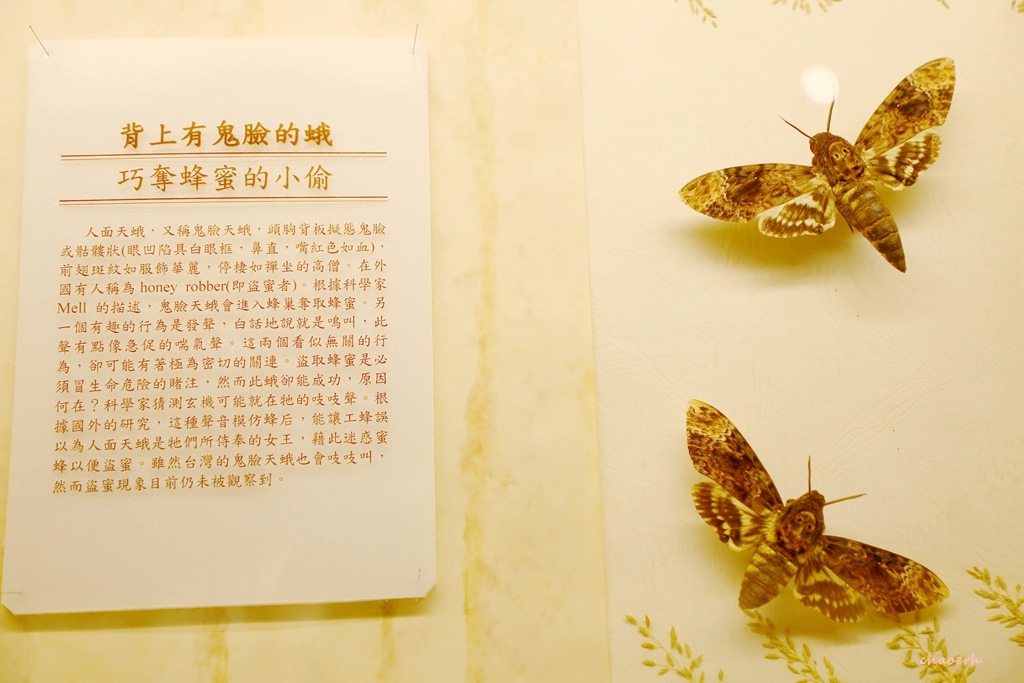 背上有鬼臉的蛾
巧奪蜂蜜的小偷
人面天蛾，又稱鬼臉天蛾，頭胸背板擬態鬼臉
或骷髏狀(眼凹陷具白眼框，鼻直，嘴紅色如血)，
前翅斑紋如服飾華麗，停棲如禪坐的高僧。在外
國有人稱為 honey robber(即盜蜜者)。根據科學家
Mell 的描述，鬼臉天蛾會進入蜂巢奪取蜂蜜。另
一個有趣的行為是發聲，白話地說就是鳴叫，此
聲有點像急促的喘氣聲。這兩個看似無關的行
為，卻可能有著極為密切的關連。盜取蜂蜜是必
須冒生命危險的賭注，然而此蛾卻能成功，原因
何在？科學家猜測玄機可能就在牠的吱吱聲。根
據國外的研究，這種聲音模仿蜂后，能讓工蜂誤
以為人面天蛾是牠們所侍奉的女王，藉此迷惑蜜
蜂以便盜蜜。雖然台灣的鬼臉天蛾也會吱吱叫，
然而盜蜜現象目前仍未被觀察到。
chaoerh